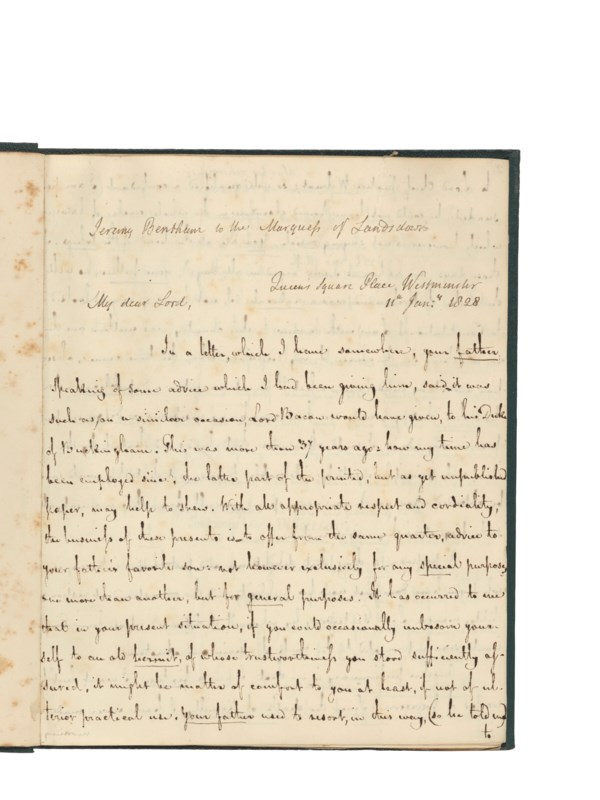 Jeremy Bentham to the Marquess of Landsdown
Queens Square Place, Westminster
11th Jany 1828
My dear Lord,
In a letter, which I have somewhere, your father,
speaking of some advice which I had been giving him, said, it was
such as, on a similar occasion, Lord Bacon would have given, to his Duke
of Buckingham. This was more than 37 years ago: how my time has
been employed since, the latter part of the printed, but as yet unpublished
paper, may help to shew. With all appropriate respect and cordiality,
the business of these presents is to offer from the same quarter, advice to
your father's favorite son: not however exclusively for any special purpose
one more than another, but for general purposes. It has occurred to me
that in your present situation, if you could occasionally unbosom your-
self to an old hermit, of whose trustworthiness you stood sufficiently as-
sured, it might be matter of comfort to you at least, if not of ul-
terior practical use. Your father used to resort, in this way, (so he told me)
to